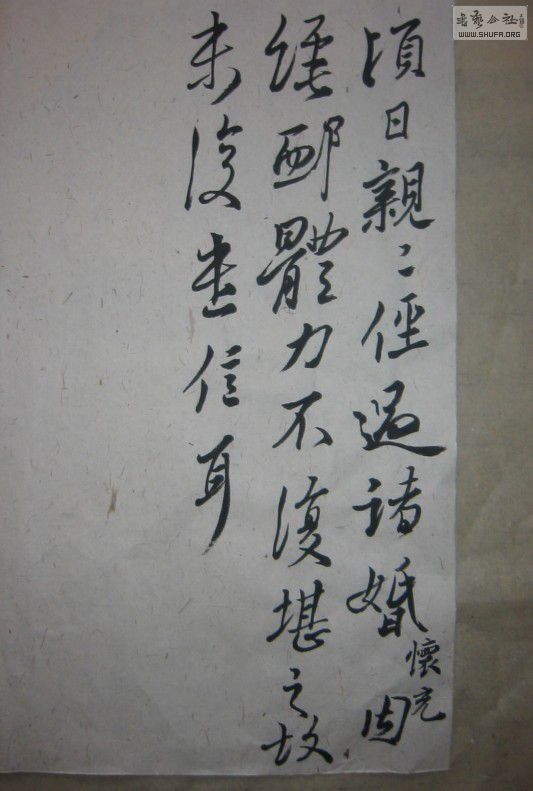 頃日親〻俓過諸婚因
懷充
體力不復堪之故
未復遣信耳
書藝公社
WWW.SHUFA.ORG